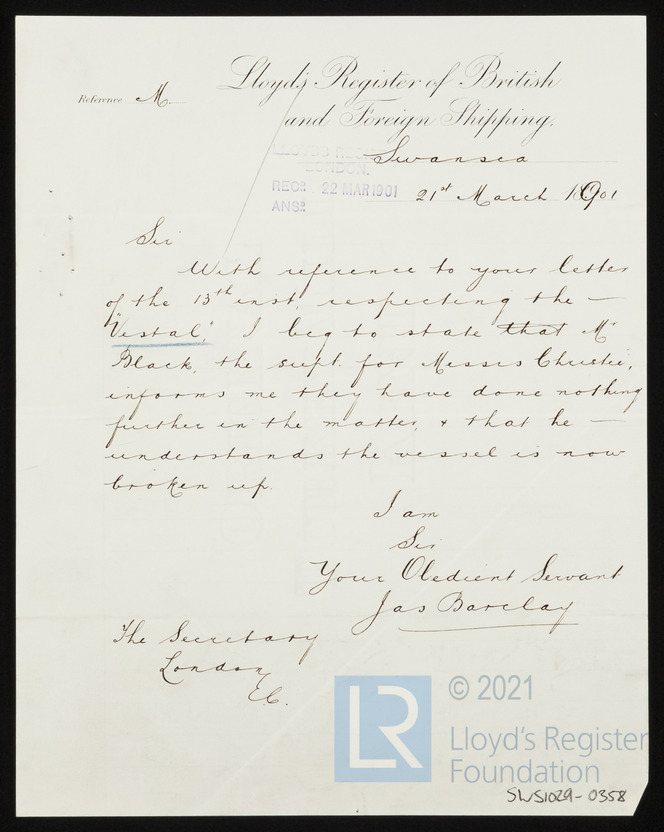 Lloyd's Register of British
Reference M.
and Foreign Shipping.
Swansea
LLOYD'S REG
LONDON.
RECD. 22 MAR 1901
21st March 1901
ANSD.
Sir
With reference to your letter
of the 13th inst, respecting the —
"Vestal", I beg to state that Mr
Black, the supt. for Messrs Christie,
informs me they have done nothing
further in the matter, & that he —
understands the vessel is now
broken up.
I am
Sir
Your Obedient Servant
Jas Barclay
The Secretary
London
E.C.
LR
© 2021
Lloyd's Register
Foundation
SWS1029-0358